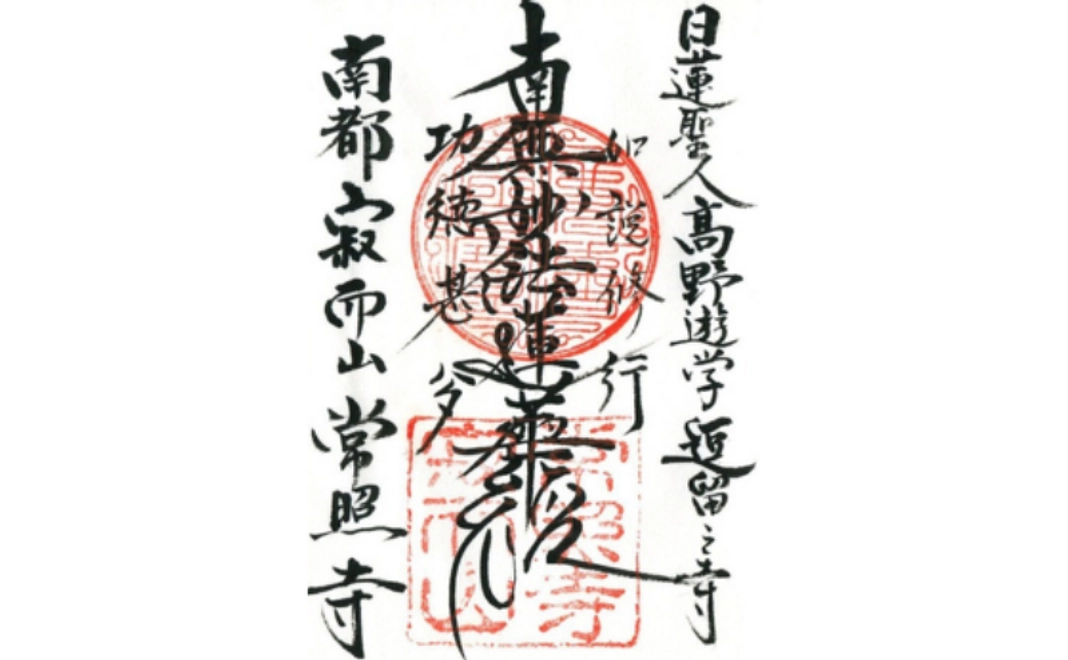 日蓮聖人高野遊学逗留之寺
如説修行
南無妙法蓮華経
功徳甚多
南都寂而山常照寺
常照寺